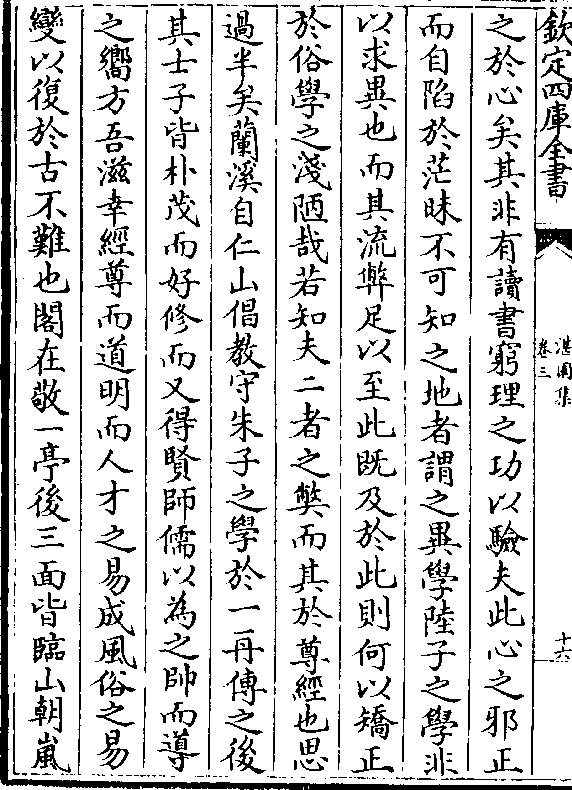 欽定四庫全書
湛園集
卷三
十六
之於心矣其非有讀書窮理之功以驗夫此心之邪正
而自陷於茫昧不可知之地者謂之異學陸子之學非
以求異也而其流弊足以至此既及於此則何以矯正
於俗學之淺陋哉若知夫二者之弊而其於尊經也思
過半矣蘭溪自仁山倡教守朱子之學於一再傳之後
其士子皆朴茂而好修而又得賢師儒以為之帥而導
之嚮方吾滋幸經尊而道明而人才之易成風俗之易
變以復於古不難也閣在敬一亭後三面皆臨山朝嵐